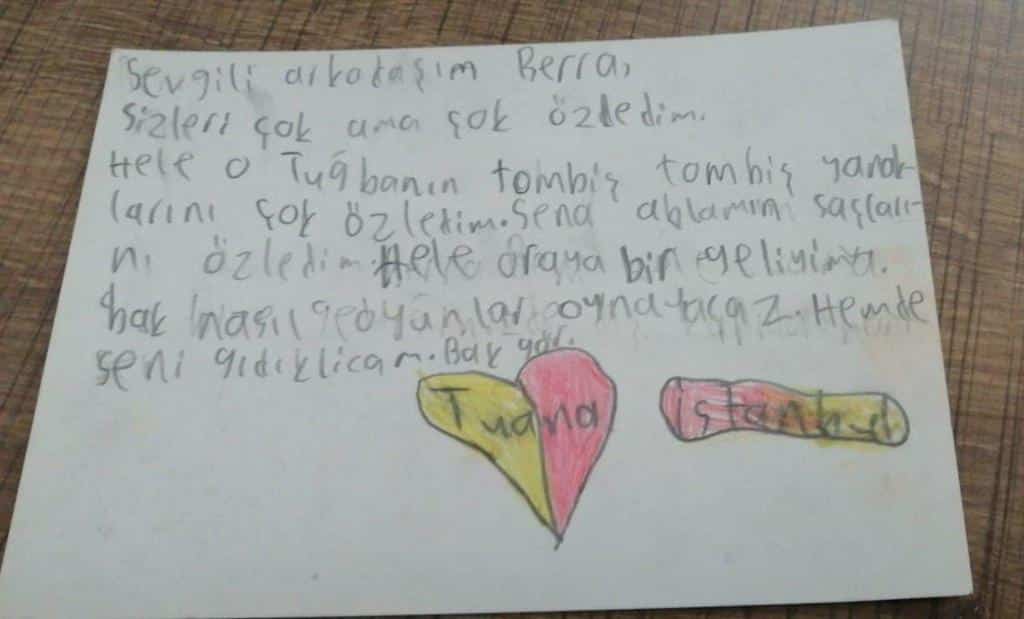 Sevgili arkadaşım Berra,
sizleri çok ama çok özledim.
Hele o Tuğbanın tombiş tombiş yanak-
larını çok özledim. Sena ablamın saçları-
nı özledim. Hele oraya bir geliyim
bak nasıl oyunlar oynatacaz. Hemde
seni gıdıklicam. Bak gör.
Tuana
istanbul